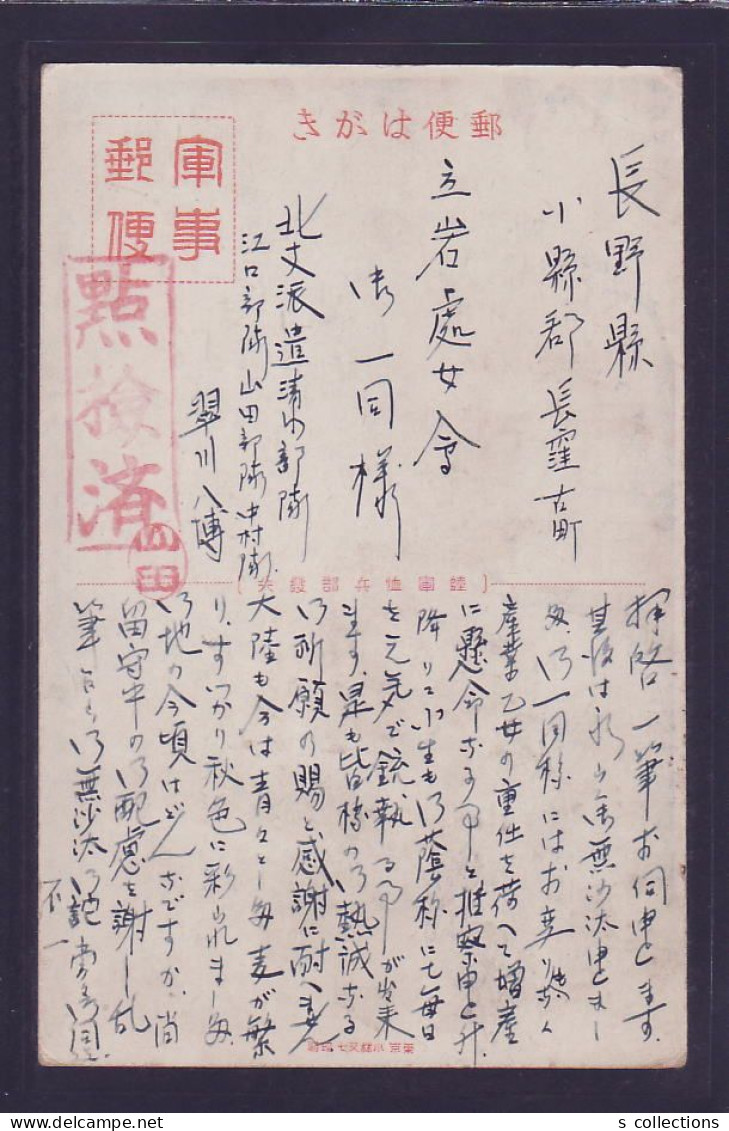 郵便はがき
軍事
郵便
點檢済
山田
長野縣
小縣郡長窪古町
立岩處女會
御一同様
北支派遣清水部隊
江口部隊山田部隊中村隊
翠川八博
陸軍恤兵部發行
拝啓一筆お伺申します
其後は永らく御無沙汰申しまし
た、御一同様にはお変り無く
産業乙女の重任を荷へて増産
に懸命なる事と推察申し升
降りて小生も御蔭様にて毎日
を元気で銃執る事が出来
ます、是も皆様の御熱誠なる
御祈願の賜と感謝に耐へません
大陸も今は青々とした麦が繁
り、すっかり秋色に彩られました
御地の今頃はどんなですか、尚
留守中の御配慮を謝し乱
筆ながら御無沙汰御詫
不一
s collections